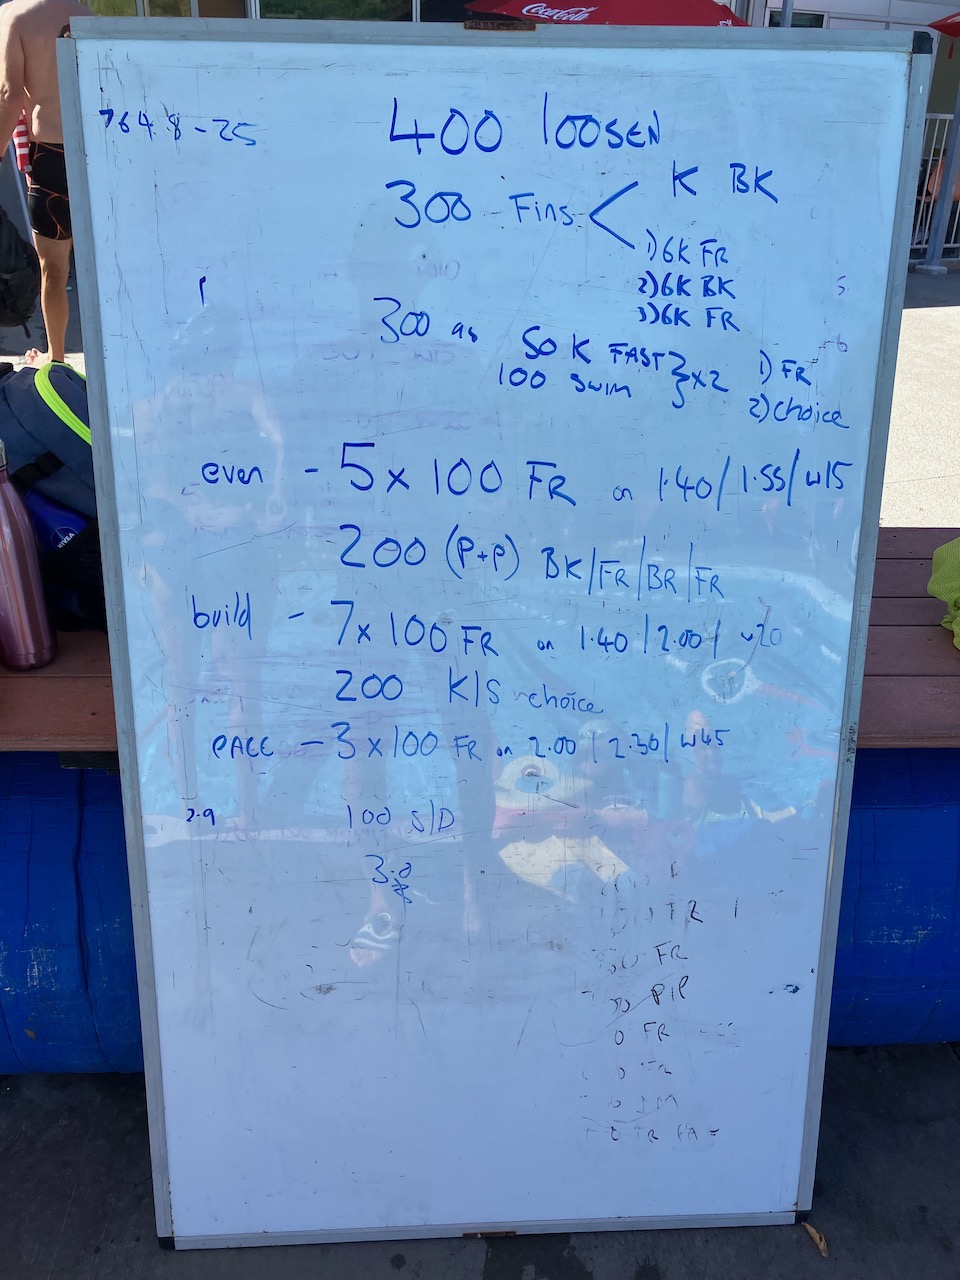 Coca-Cola
400 loosen
300 Fins < K BK
1) 6K FR
2) 6K BK
3) 6K FR
300 as 50 K FAST } x2 1) FR
100 swim 2) choice
even - 5 x 100 FR on 1.40 / 1.55 / w15
200 (P+P) BK/FR/BR/FR
build - 7 x 100 FR on 1.40 / 2.00 / w20
200 K/S choice
PACE - 3 x 100 FR on 2.00 / 2.30 / w45
2.9 100 S/D
FR
P/P
0 FR
NIVEA